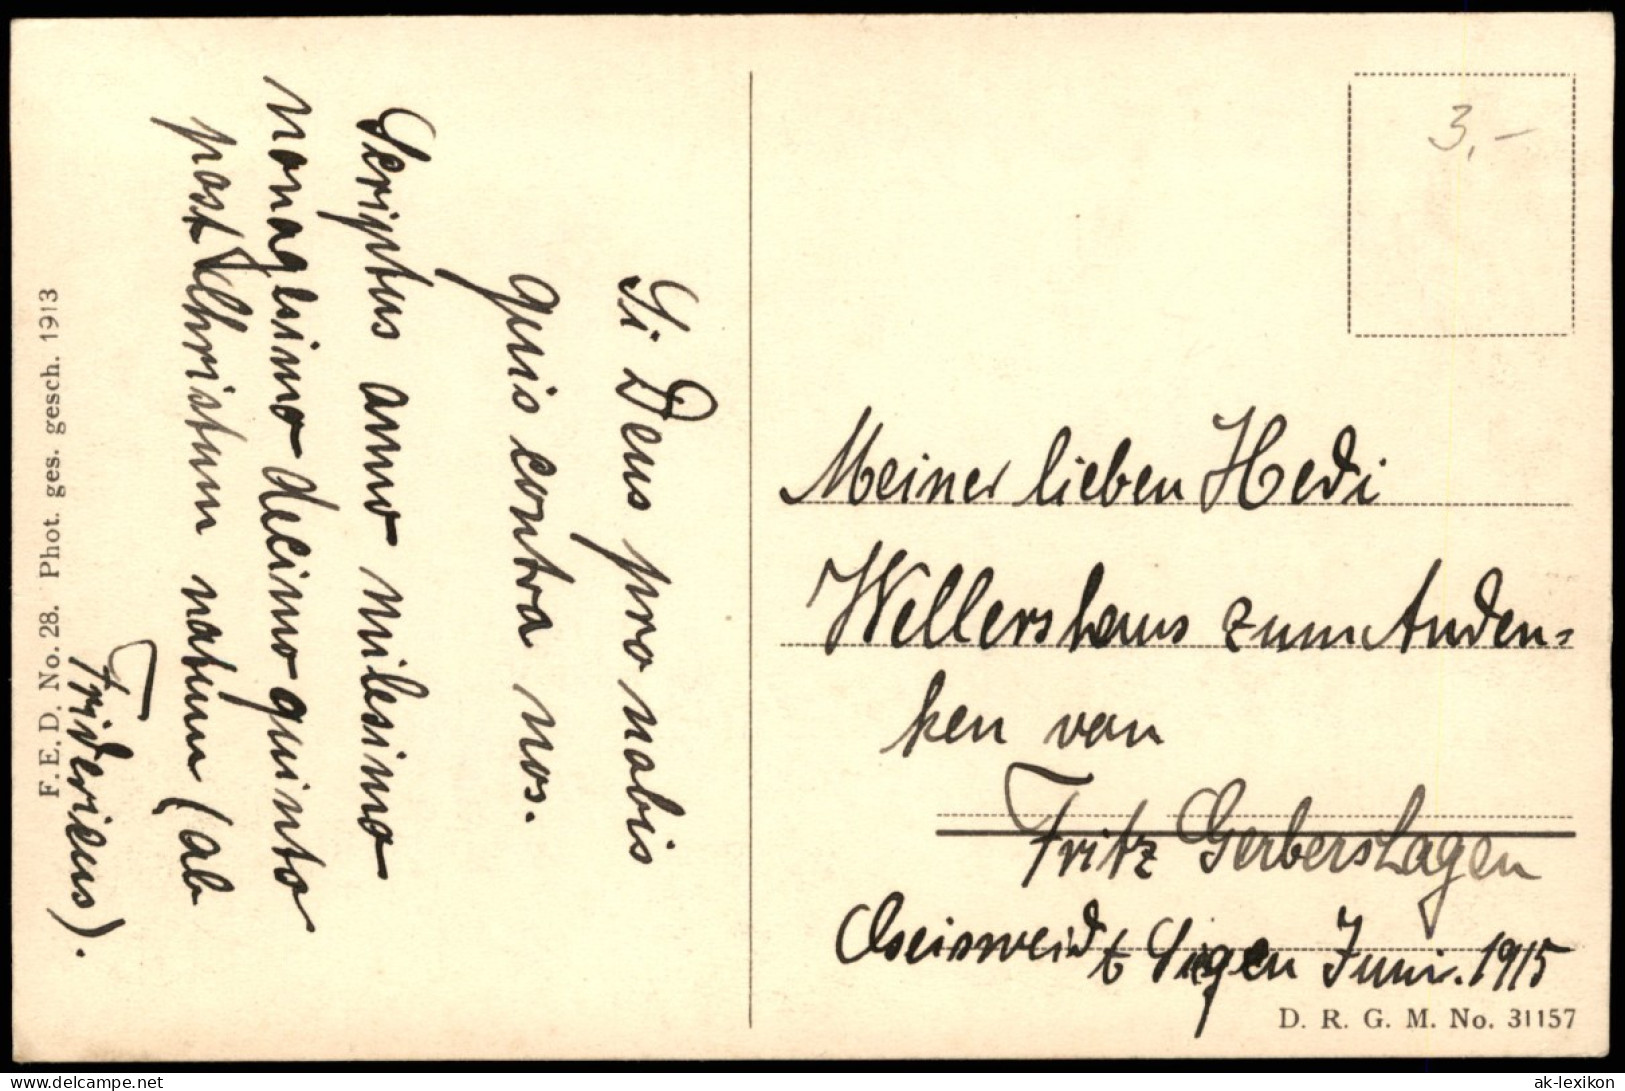 Si Deus pro nobis
quis contra nos.
Scriptus anno milesimo
nonagesimo decimo quinto
post Christum natum (ab
Fridericus).
F. E. D. No. 28. Phot. ges. gesch. 1913
3,-
Meiner lieben Hedi
Wellershaus zum Anden=
ken von
Fritz Gerbershagen
b Siegen Juni. 1915
D. R. G. M. No. 31157
ak-lexikon
www.delcampe.net